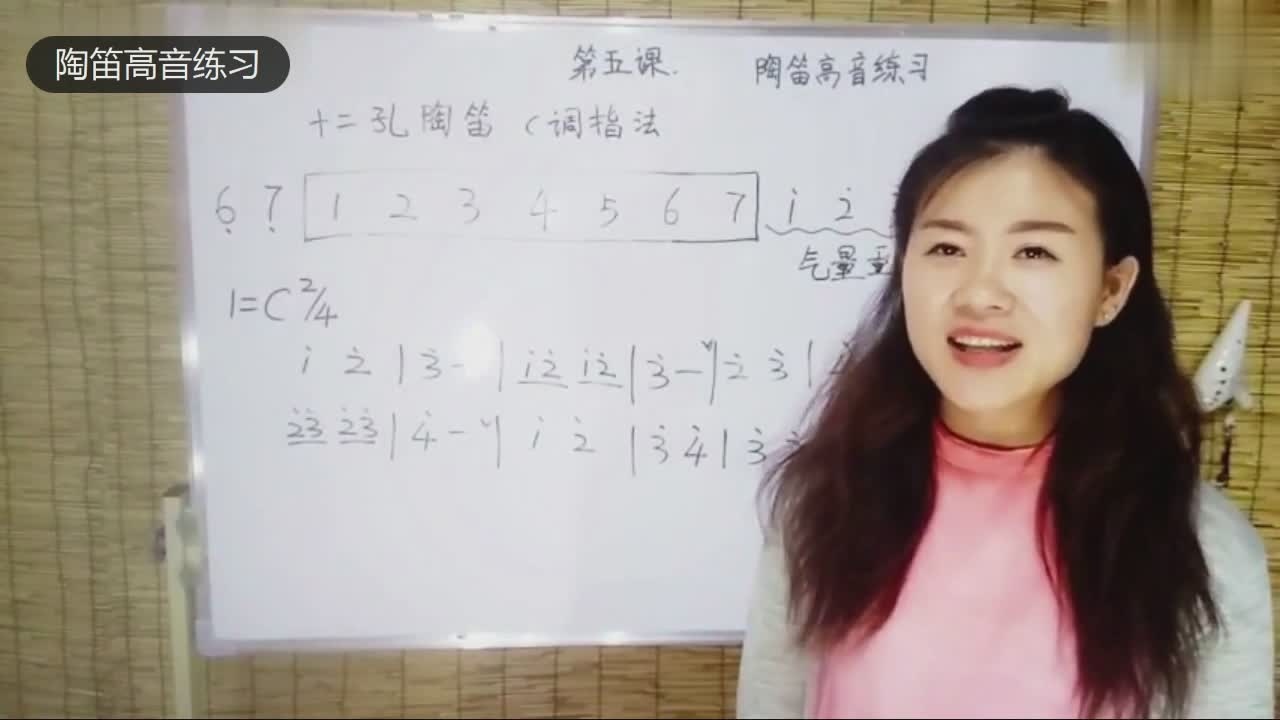 陶笛高音练习
第五课. 陶笛高音练习
十二孔陶笛 C调指法
6̣ 7̣ 1 2 3 4 5 6 7 1̇ 2̇
气量
1=C 2/4
1̇ 2̇ | 3̇ - | 1̇2̇ 1̇2̇ | 3̇ - ˅| 2̇ 3̇ |
2̇3̇ 2̇3̇ | 4̇ - ˅| 1̇ 2̇ | 3̇ 4̇ | 3̇